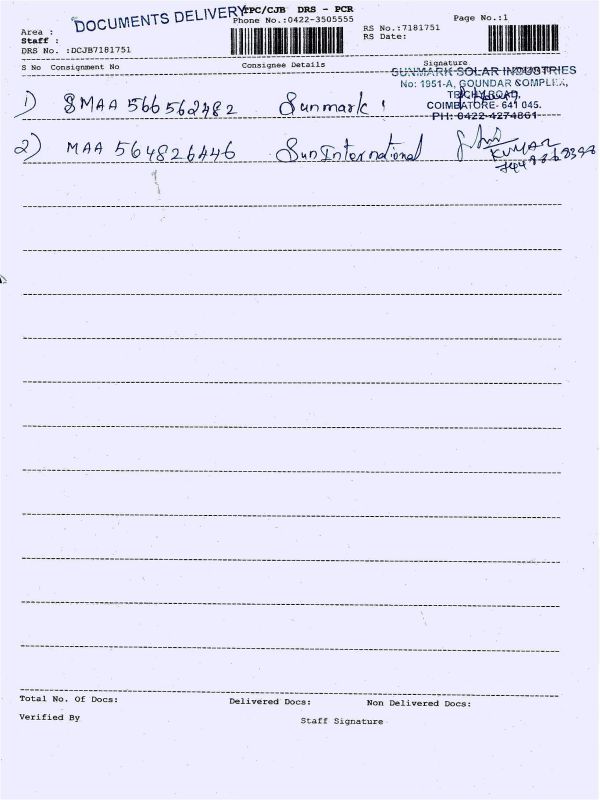 DOCUMENTS DELIVERY
TPC/CJB DRS - PCR
Phone No.:0422-3505555
RS No.:7181751
Page No.:1
Area :
RS Date:
Staff :
DRS No. :DCJB7181751
S No Consignment No Consignee Details Signature
SUNMARK SOLAR INDUSTRIES
No: 1951-A, GOUNDAR COMPLEX,
TRICHY ROAD,
COIMBATORE- 641 045.
PH: 0422-4274861
1) SMAA 566562482 Sunmark
2) MAA 564826446 Sun International
KUMAR
Total No. Of Docs: Delivered Docs: Non Delivered Docs:
Verified By Staff Signature